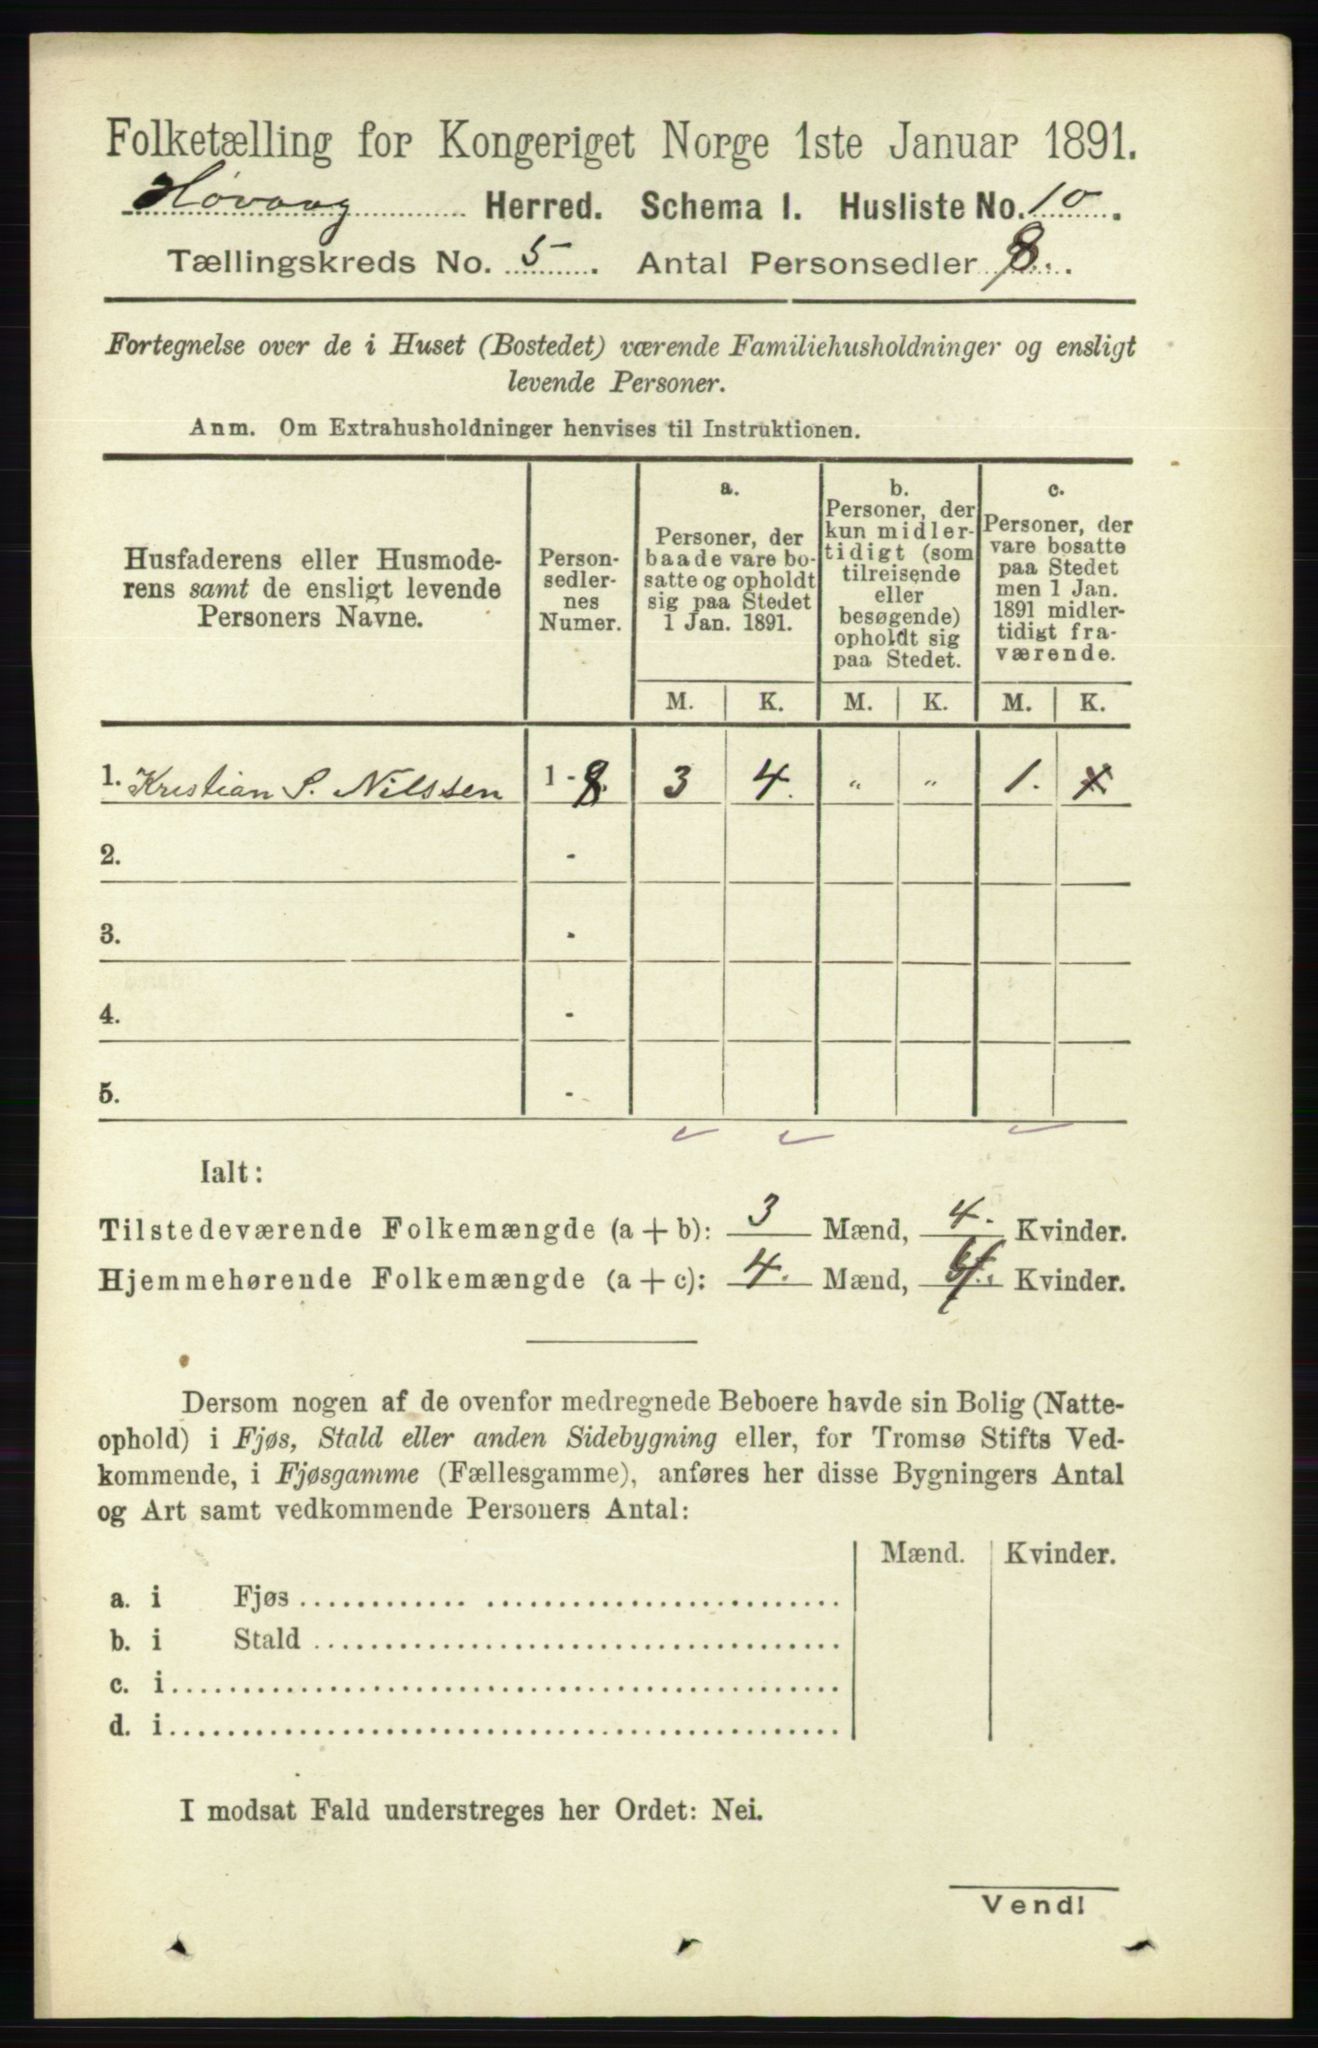 Folketælling for Kongeriget Norge 1ste Januar 1891.
Høvaag Herred. Schema I. Husliste No. 10.
Tællingskreds No. 5. Antal Personsedler 8.
Fortegnelse over de i Huset (Bostedet) værende Familiehusholdninger og ensligt
levende Personer.
Anm. Om Extrahusholdninger henvises til Instruktionen.
Husfaderens eller Husmode-
rens samt de ensligt levende
Personers Navne.
Person-
sedler-
nes
Numer.
a.
Personer, der
baade vare bo-
satte og opholdt
sig paa Stedet
1 Jan. 1891.
b.
Personer, der
kun midler-
tidigt (som
tilreisende
eller
besøgende)
opholdt sig
paa Stedet.
c.
Personer, der
vare bosatte
paa Stedet
men 1 Jan.
1891 midler-
tidigt fra-
værende.
M. K. M. K. M. K.
1. Kristian S. Nilssen 1 - 8. 3 4. " " 1.
2. -
3. -
4. -
5. -
Ialt:
Tilstedeværende Folkemængde (a + b): 3 Mænd, 4. Kvinder.
Hjemmehørende Folkemængde (a + c): 4. Mænd, Kvinder.
Dersom nogen af de ovenfor medregnede Beboere havde sin Bolig (Natte-
ophold) i Fjøs, Stald eller anden Sidebygning eller, for Tromsø Stifts Ved-
kommende, i Fjøsgamme (Fællesgamme), anføres her disse Bygningers Antal
og Art samt vedkommende Personers Antal:
Mænd. Kvinder.
a. i Fjøs
b. i Stald
c. i
d. i
I modsat Fald understreges her Ordet: Nei.
Vend!